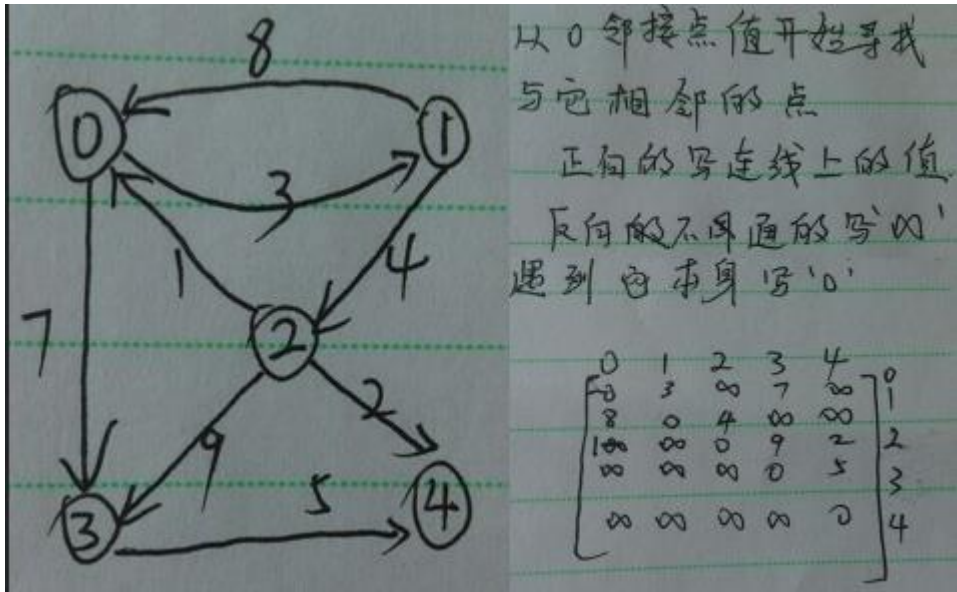 8
0
1
3
1
4
7
2
9
2
3
5
4
从0邻接点值开始寻找
与它相邻的点
正向的写连线上的值.
反向的不通的写'∞'
遇到它本身写'0'
0 1 2 3 4
0 3 ∞ 7 ∞ 0
8 0 4 ∞ ∞ 1
1 ∞ 0 9 2 2
∞ ∞ ∞ 0 5 3
∞ ∞ ∞ ∞ 0 4